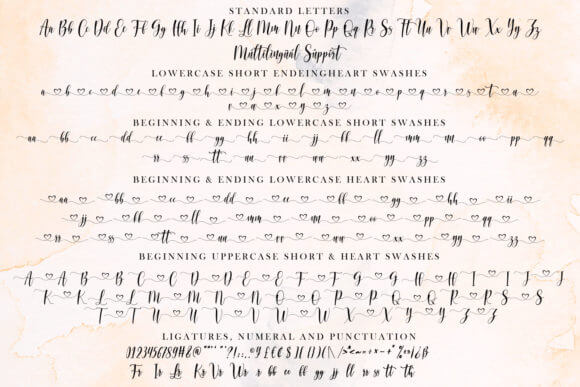 STANDARD LETTERS
Aa Bb Cc Dd Ee Ff Gg Hh Ii Jj Kk Ll Mm Nn Oo Pp Qq Rr Ss Tt Uu Vv Ww Xx Yy Zz
Multilingual Support
LOWERCASE SHORT ENDEINGHEART SWASHES
a b c d e f g h i j k l m n o p q r s t u
v a x y z g
BEGINNING & ENDING LOWERCASE SHORT SWASHES
aa bb cc dd ee ff gg hh ii jj ff ll mm nn oo pp qq
rr ss tt uu rr uu xx yy zz
BEGINNING & ENDING LOWERCASE HEART SWASHES
aa bb cc dd ee ff gg hh ii
jj ff ll mm nn oo pp qq
rr ss tt uu vv xx yy zz
BEGINNING UPPERCASE SHORT & HEART SWASHES
A A B B C C D D E E F F G G H H I I J J
K K L L M M N N O O P P Q Q R R S S
T T U U V V W W X X Y Y Z Z
LIGATURES, NUMERAL AND PUNCTUATION
0123456789#@
Fr Ir Lr Kr Vr Wr ee ff gg jj ll rr ss tt th